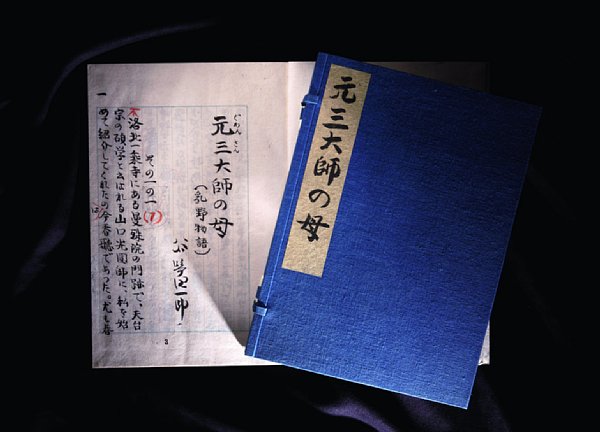 元三大師の母
ぐわんざん
元三大師の母
（乳野物語）
谷崎潤一郎
その一の一
(1)
洛北一乗寺にある曼殊院の門跡で、天台
宗の碩学と云はれる山口光圓師に、私を始
めて紹介してくれたのは今春聽であつた。尤も春
一
3